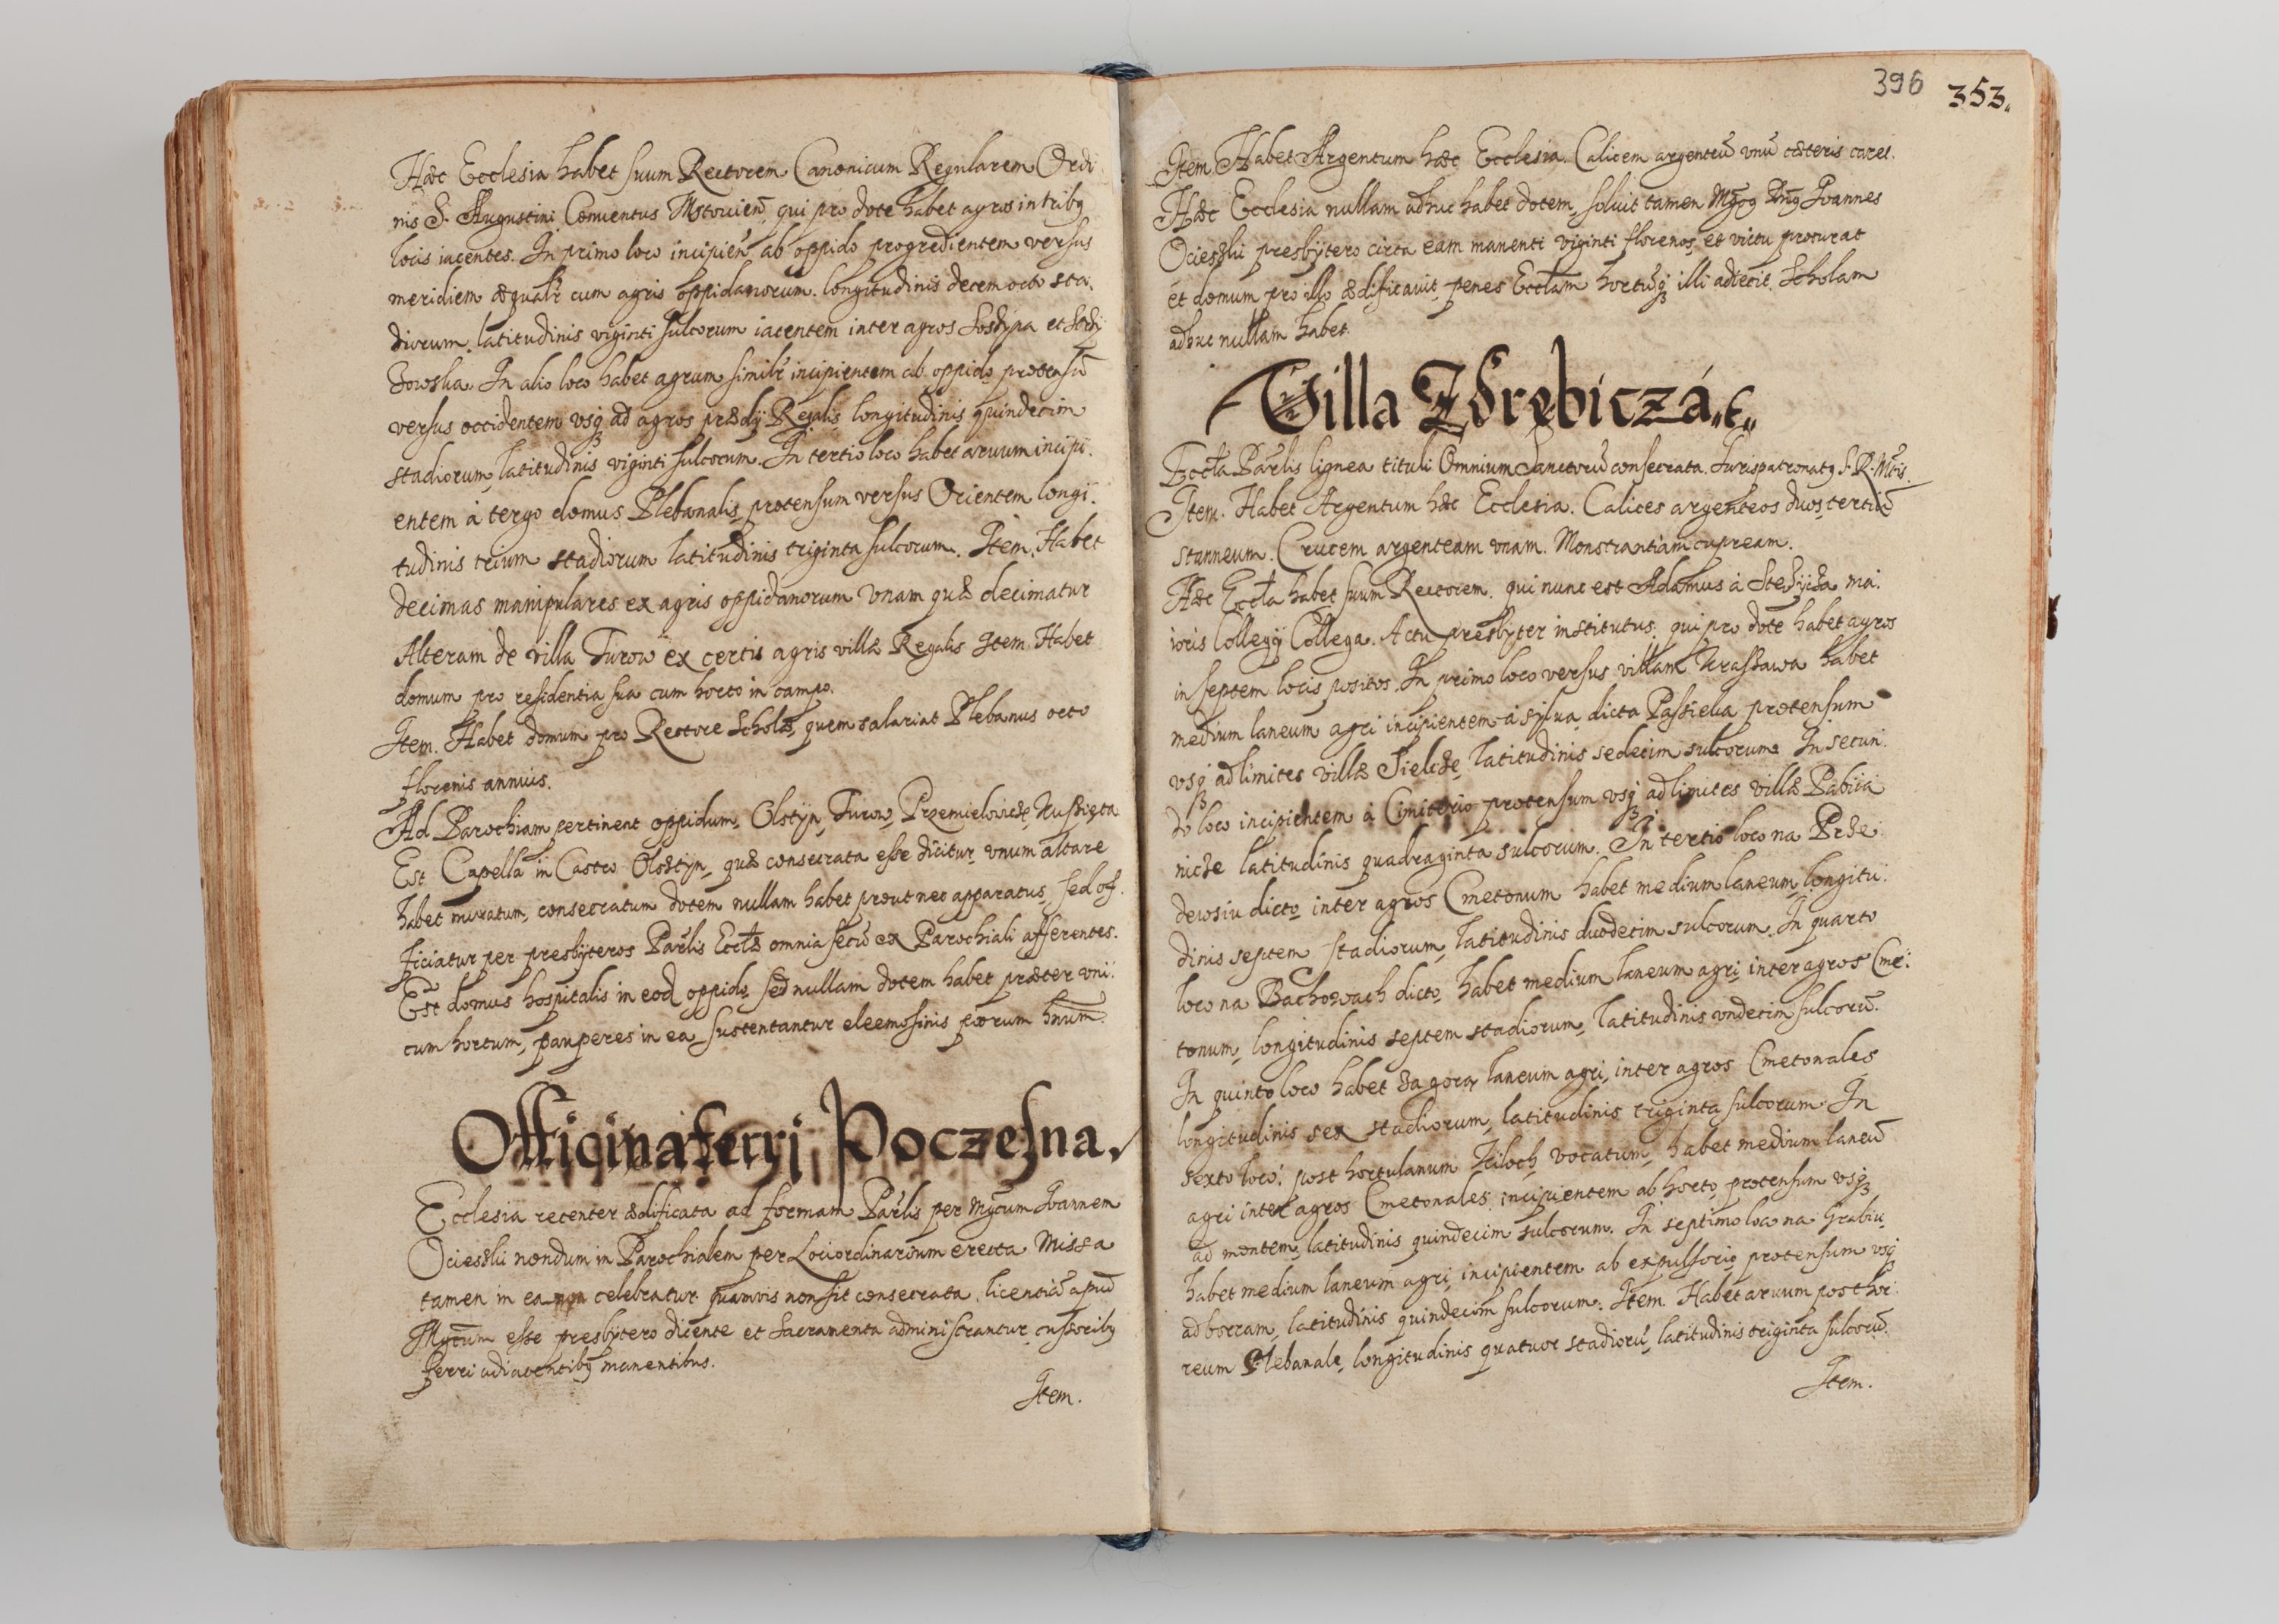 Hæc Ecclesia habet suum Rectorem Canonicum Regularem Ordi
nis S. Augustini Conuentus Mstouien̄, qui pro dote habet agros in tribȝ
locis iacentes. In primo loco incipien̄ ab oppido progredientem versus
meridiem æqualr̄ cum agris oppidanorum. longitudinis decem octo sta.
diorum, latitudinis viginti sulcorum iacentem inter agros
In alio loco habet agrum similr̄ incipientem ab oppido protensū
versus occidentem vsqȝ ad agros prædij Regalis longitudinis quindecim
stadiorum, latitudinis viginti sulcorum. In tertio loco habet aruum incipi.
entem à tergo domus Plebanalis, protensum versus Orientem longi.
tudinis trium stadiorum latitudinis triginta sulcorum. Item. Habet
decimas manipulares ex agris oppidanorum vnam quæ decimatur
Alteram de villa Turow ex certis agris villæ Regalis Item Habet
domum pro residentia sua cum horto in campo.
Item. Habet domum pro Rectore Scholæ, quem salariat Plebanus octo
florenis annuis.
Ad Parochiam pertinent oppidum, Olstyn, Turow, Przemielowicze, Kussięta
Est Capella in Castro Olsztyn, quæ consecrata esse dicitur, vnum altare
habet muratum, consecratum dotem nullam habet prout nec apparatus, sed of.
ficiatur per presbyteros Parlīs Ecclæ omnia secū ex Parochiali afferentes.
Est domus hospitalis in eod oppido, sed nullam dotem habet præter vni.
cum hortum, pauperes in ea sustentantur eleemosinis piorum hnum̄.
Officina ferri Poczesna.
Ecclesia recenter ædificata ad formam Parlīs per Mgcum Joannem
Ocieski nondum in Parochialem per Loci ordinarium erecta Missa
tamen in ea non celebratur quamuis non sit consecrata, licentiā apud
Mgcum esse presbytero dicente et Sacramenta administrantur cusoribȝ
ferri adiacentibȝ manentibus.
Item.
396 353.
Item Habet Argentum hæc Ecclesia. Calicem argenteū vnū cæteris caret.
Hæc Ecclesia nullam adhuc habet dotem, soluit tamen Mgcȝ Dnȝ Joannes
Ocieski presbytero circa eam manenti viginti florenos, et victū procurat
et domum pro illo ædificauit, penes Eccl̄am hortūqȝ illi adiecit. Scholam
adhuc nullam habet.
Villa Zdrębiczá
Eccl̄a Parlīs lignea tituli Omnium Sanctorū consecrata. Jurispatronatȝ S. R. Mtis.
Item. Habet Argentum hæc Ecclesia. Calices argenteos duos, tertiū
stanneum. Crucem argenteam vnam. Monstrantiam cupream.
Hæc Eccl̄a habet suum Rectorem. qui nunc est Adamus à Stezycza mai.
ioris Collegij Collega. Actu presbyter institutus. qui pro dote habet agros
in septem locis positos. In primo loco versus villam Krassawa habet
medium laneum agri incipientem à sylua dicta Passieka protensum
vsqȝ ad limites villæ Sielcze, latitudinis sedecim sulcorum. In secun.
do loco incipientem à Cimiterio protensum vsqȝ ad limites villæ Pabia
nicze latitudinis quadraginta sulcorum. In tertio loco na Prze
dewsiu dicto inter agros Cmetonum habet medium laneum, longitu.
dinis septem stadiorum, latitudinis duodecim sulcorum. In quarto
loco na Bachorzach dicto, habet medium laneum agri, inter agros Cme.
tonum, longitudinis septem stadiorum, latitudinis vndecim sulcorū.
In quinto loco habet za gora laneum agri, inter agros Cmetonales
longitudinis sex stadiorum, latitudinis triginta sulcorum. In
sexto loco. post hortulanum Kiloch vocatum, habet medium laneū
agri inter agros Cmetonales. incipientem ab horto, protensum vsqȝ
ad montem, latitudinis quindecim sulcorum. In septimo loco na Grabiu,
habet medium laneum agri, incipientem ab expulsorio protensum vsqȝ
ad borram, latitudinis quindecim sulcorum. Item. Habet aruum post hor.
reum Plebanale, longitudinis quatuor stadiorū, latitudinis triginta sulcorū.
Item.